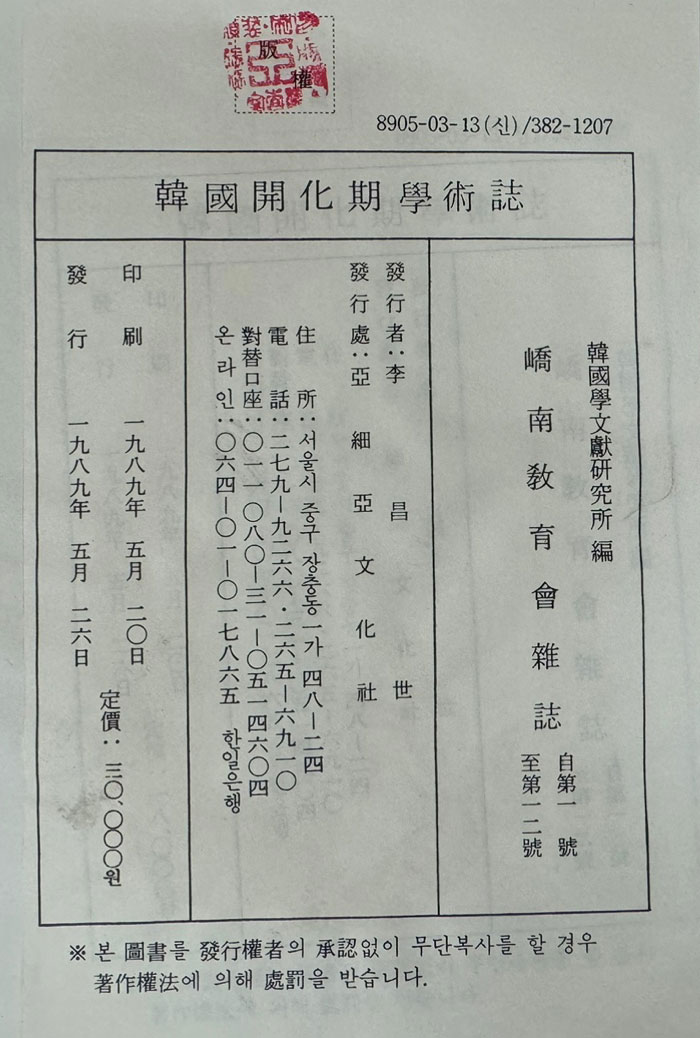 版
權
8905-03-13(신)/382-1207
韓國開化期學術誌
韓國學文獻硏究所 編
嶠南敎育會雜誌
自第一號
至第一二號
發行者：李昌世
發行處：亞細亞文化社
住所：서울시 중구 장충동 一가 四八―二四
電話：二七九―九二六六・二六五―六九一〇
對替口座：〇一一〇八〇―三一―〇五一四六〇四
온라인：〇六四―〇一―〇一七八六五 한일은행
印刷 一九八九年 五月 二〇日
發行 一九八九年 五月 二六日
定價：三〇、〇〇〇원
※ 본 圖書를 發行權者의 承認없이 무단복사를 할 경우
著作權法에 의해 處罰을 받습니다.